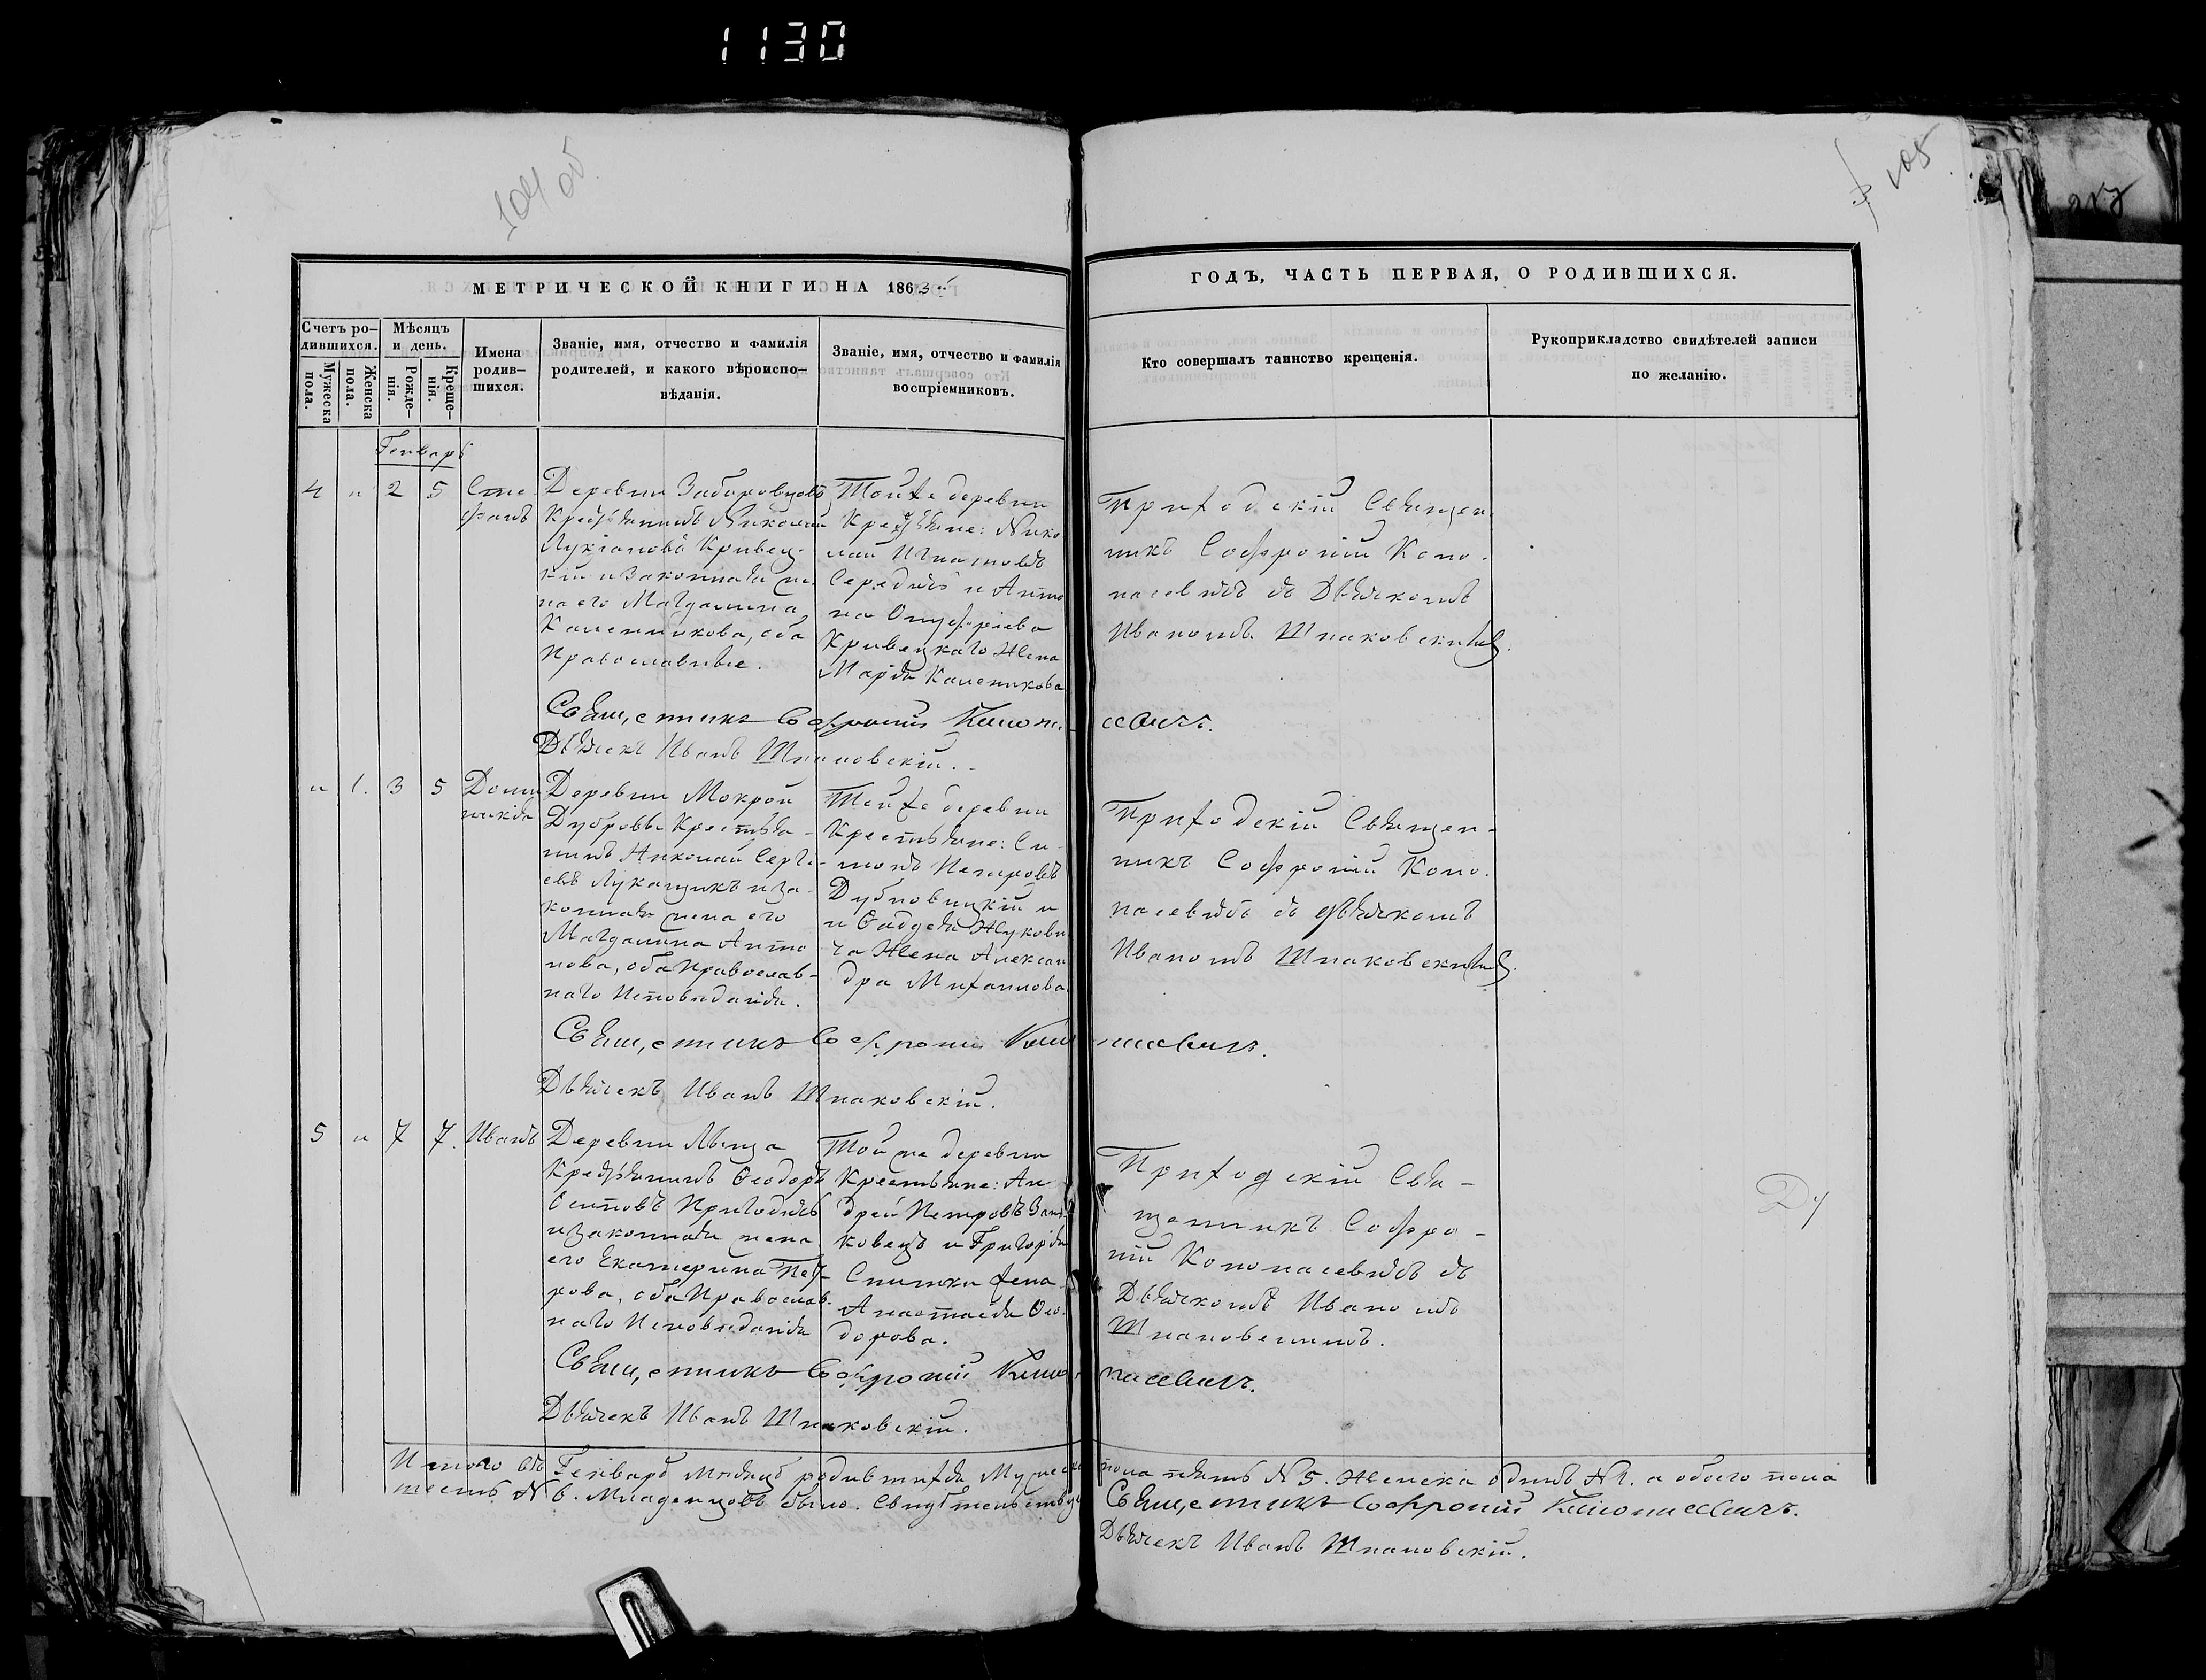 1130
104 об
105
МЕТРИЧЕСКОЙ КНИГИ НА 1863
Счетъ ро-
дившихся.
Мужеска
пола.
Женска
пола.
Мѣсяцъ
и день.
Рожде-
нія.
Креще-
нія.
Имена
родив-
шихся.
Званіе, имя, отчество и фамилія
родителей, и какого вѣроиспо-
вѣданія.
Званіе, имя, отчество и фамилія
воспріемниковъ.
ГОДЪ, ЧАСТЬ ПЕРВАЯ, О РОДИВШИХСЯ.
Кто совершалъ таинство крещенія.
Рукоприкладство свидѣтелей записи
по желанію.
Генварь
4 " 2 5
Сте-
фанъ
Деревни
Крестьянинъ Николай
Лукіановъ Кривец-
кій и законная же-
на его Магдалина
Каленикова, оба
Православные.
Тойже деревни
Крестьяне: Нико-
лай Игнатовъ
и Анто-
на Онуфріева
Кривецкаго Жена
Марія Каленикова
Приходскій Священ-
никъ Софроній Коно-
пасевичъ съ Дьячкомъ
Иваномъ Шпаковскимъ.
Священникъ Софроній Конопасевичъ.
Дьячекъ Иванъ Шпаковскій.
" 1. 3 5
Доми-
никія
Деревни Мокрой
Дубровы Крестья-
нинъ Николай Сергѣ-
евъ Лукащикъ и за-
конная жена его
Магдалина Анто-
нова, оба Православ-
наго Исповеданія.
Тойже деревни
Крестьяне: Си-
монъ Петровъ
Дубновицкій и
и Фадея Жукови-
ча Жена Алексан-
дра Михаилова
Приходскій Священ-
никъ Софроній Коно-
пасевичъ съ дьячкомъ
Иваномъ Шпаковскимъ.
Священникъ Софроній Конопасевичъ.
Дьячекъ Иванъ Шпаковскій.
5 " 7 7.
Иванъ
Деревни Лыща
Крестьянинъ Ѳеодоръ
Осиповъ Пригодичъ
и законная жена
его Екатерина Пет-
рова, оба Православ-
наго Исповеданія
Той же деревни
Крестьяне: Ан-
дрей Петровъ
и Григорія
жена
Анастасія Ѳео-
дорова.
Приходскій Свя-
щенникъ Софро-
ній Конопасевичъ съ
Дьячкомъ Иваномъ
Шпаковскимъ.
Священникъ Софроній Конопасевичъ.
Дьячекъ Иванъ Шпаковскій.
Итого въ Генварѣ Месяцѣ родившихся Мужеска пола пять №5. Женска одинъ №1. а обоего пола
шесть №6. Младенцовъ было.
Священникъ Софроній Конопасевичъ.
Дьячекъ Иванъ Шпаковскій.